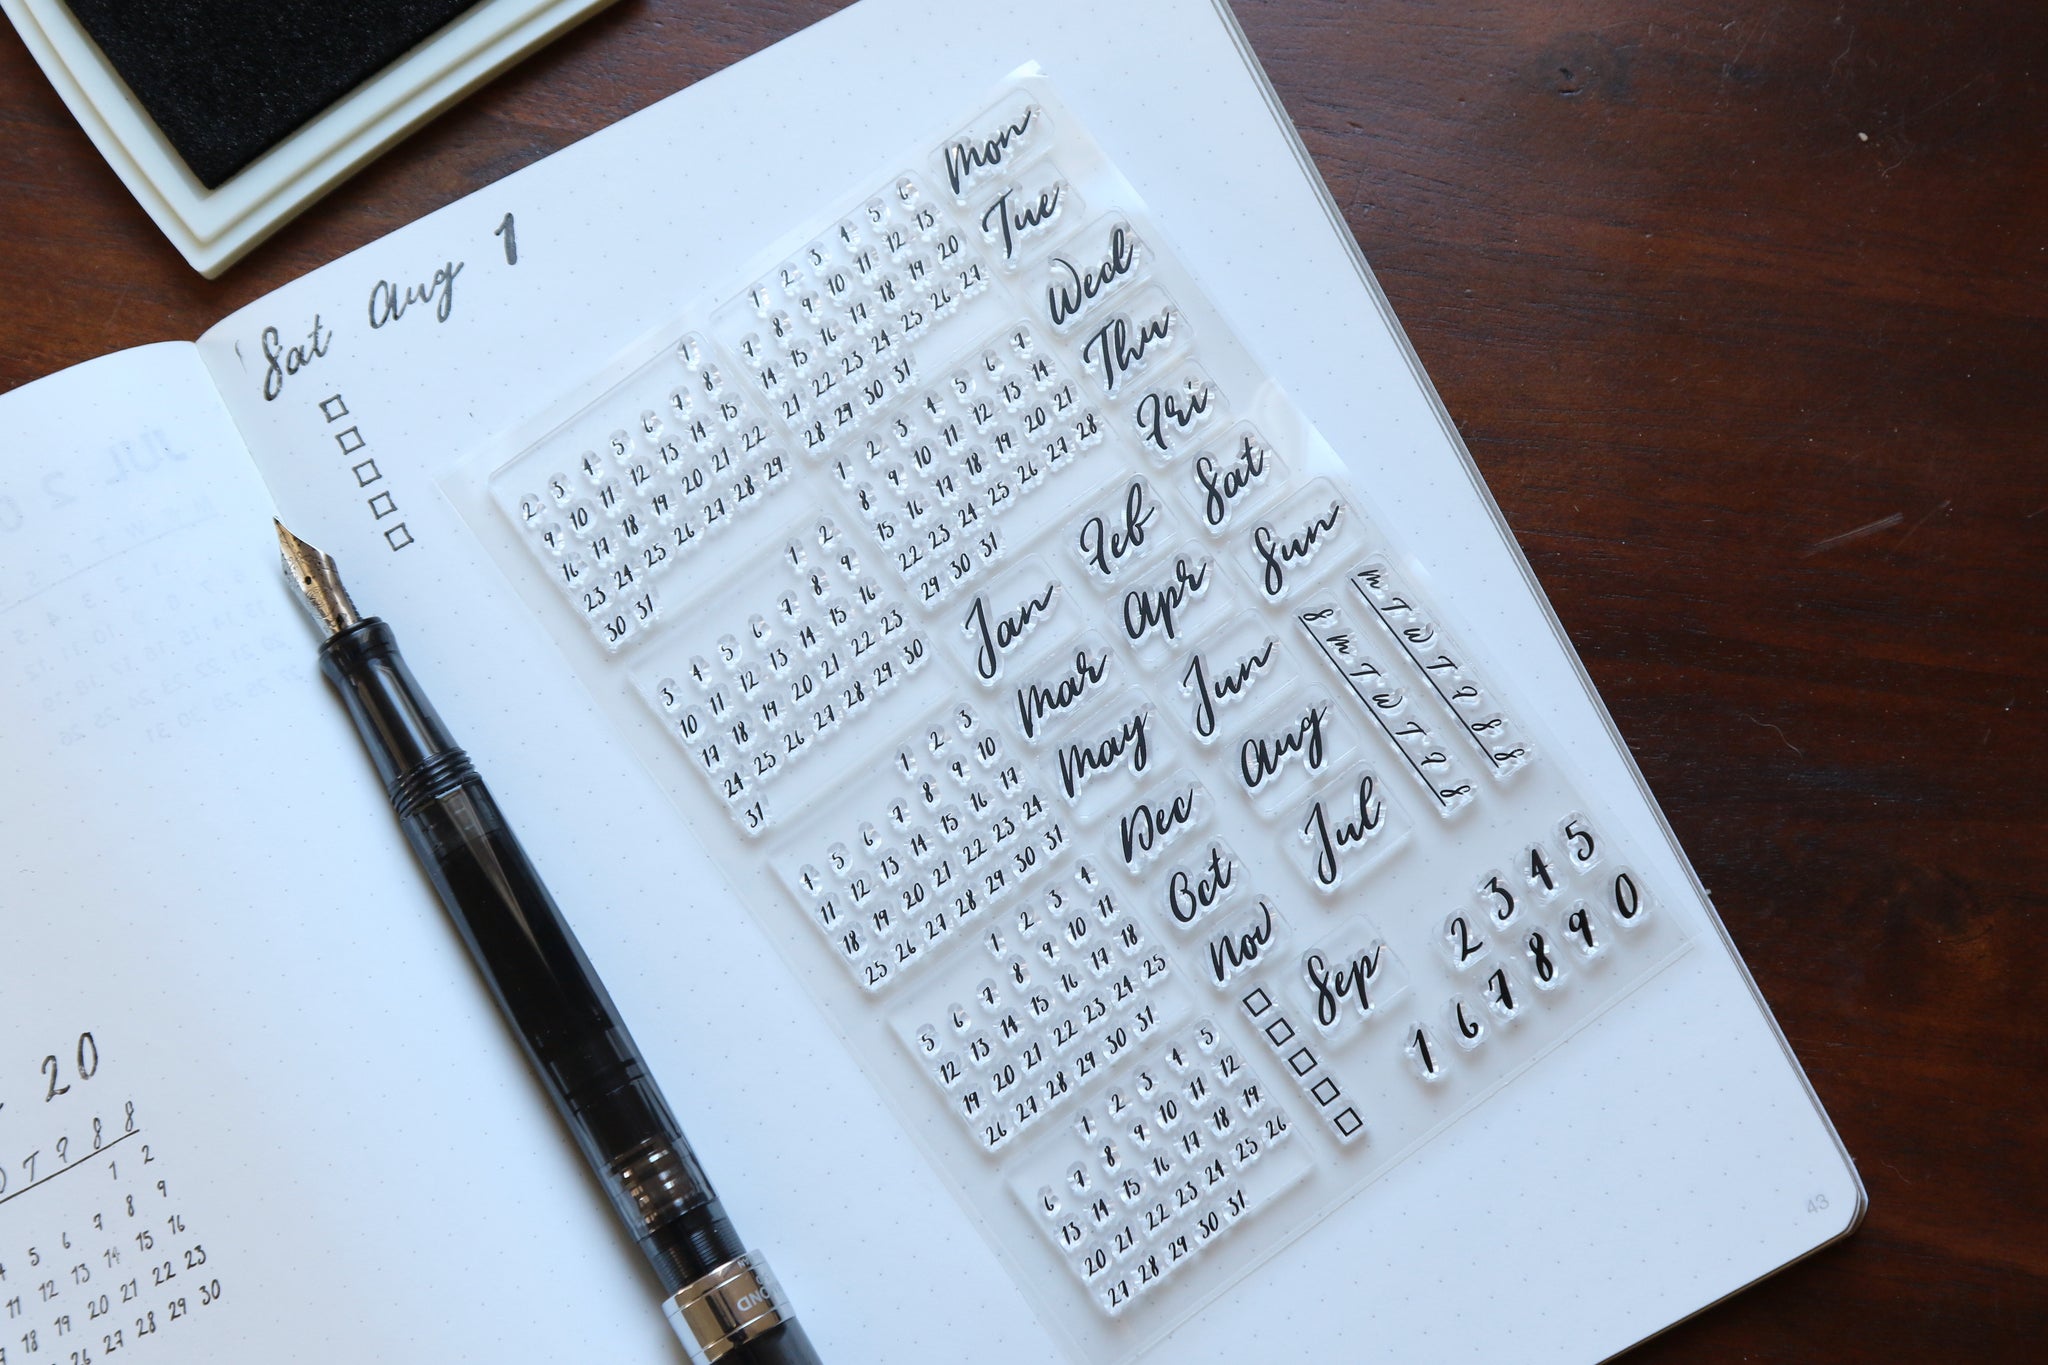 Sat Aug 1
JUL 2 0
20
T F S S
1 2
4 5 6 7 8 9
11 12 13 14 15 16
18 19 20 21 22 23
26 27 28 29 30
1
2 3 4 5 6 7 8
9 10 11 12 13 14 15
16 17 18 19 20 21 22
23 24 25 26 27 28 29
30 31
1 2 3 4 5 6
7 8 9 10 11 12 13
14 15 16 17 18 19 20
21 22 23 24 25 26 27
28 29 30 31
1 2
3 4 5 6 7 8 9
10 11 12 13 14 15 16
17 18 19 20 21 22 23
24 25 26 27 28 29 30
31
1 2 3 4 5 6 7
8 9 10 11 12 13 14
15 16 17 18 19 20 21
22 23 24 25 26 27 28
29 30 31
1 2 3
4 5 6 7 8 9 10
11 12 13 14 15 16 17
18 19 20 21 22 23 24
25 26 27 28 29 30 31
1 2 3 4
5 6 7 8 9 10 11
12 13 14 15 16 17 18
19 20 21 22 23 24 25
26 27 28 29 30 31
1 2 3 4 5
6 7 8 9 10 11 12
13 14 15 16 17 18 19
20 21 22 23 24 25 26
27 28 29 30 31
Mon
Tue
Wed
Thu
Fri
Sat
Sun
Jan Feb
Mar Apr
May Jun
Dec Aug
Oct Jul
Nov Sep
M T W T F S S
S M T W T F S
2 3 4 5
1 6 7 8 9 0
43